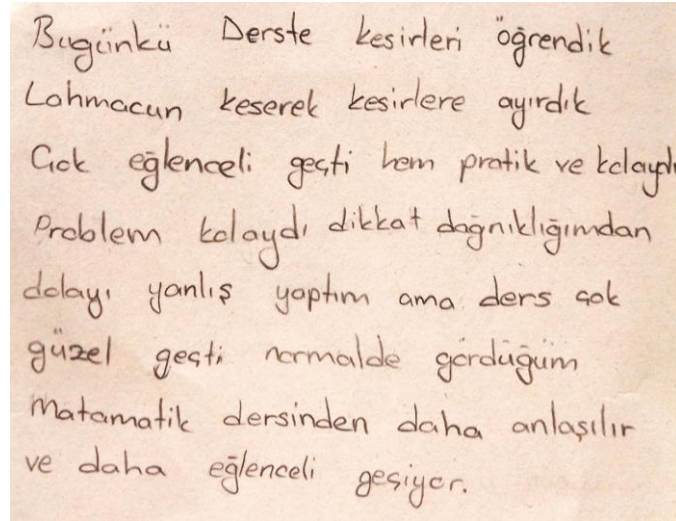 Bugünkü Derste kesirleri öğrendik
Lahmacun keserek kesirlere ayırdık
Çok eğlenceli geçti hem pratik ve kolaydı
Problem kolaydı dikkat dağnıklığımdan
dolayı yanlış yaptım ama ders çok
güzel geçti normalde gördüğüm
matamatik dersinden daha anlaşılır
ve daha eğlenceli geçiyor.